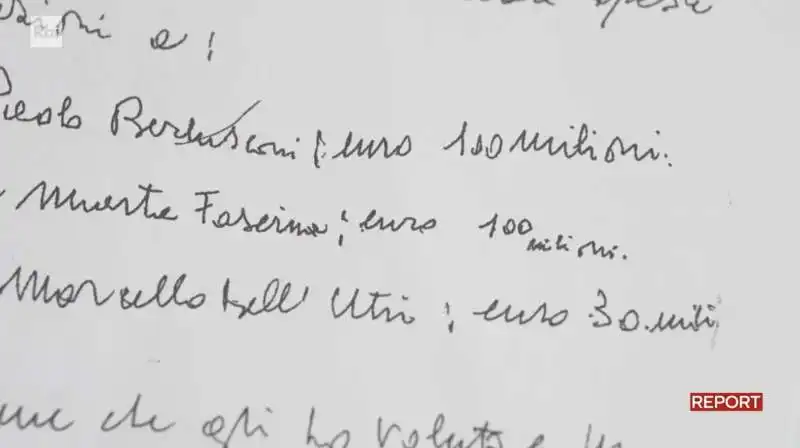 Rai
a:
Paolo Berlusconi: euro 100 milioni.
Marta Fascina; euro 100 milioni.
Marcello Dell' Utri; euro 30 mili
che gli ho voluto e
REPORT